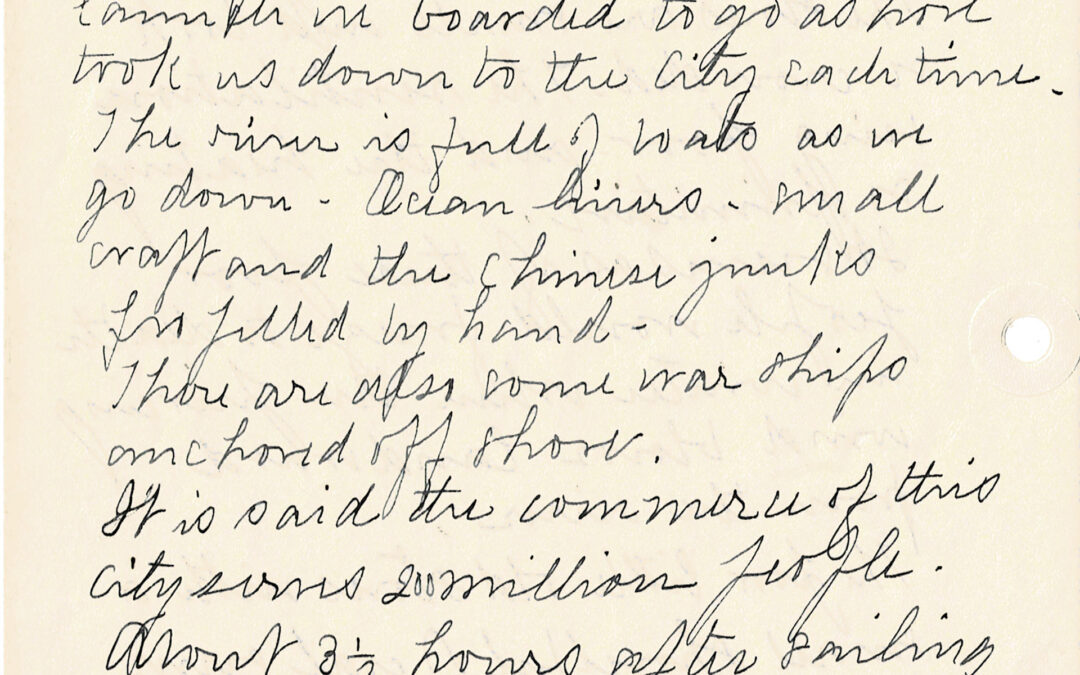 launch we boarded to go ashore
took us down to the City each time.
The river is full of boats as we
go down - Ocean liners - small
craft and the Chinese junks
propelled by hand -
There are also some war ships
anchored off shore.
It is said the commerce of this
city serves 200 million people.
About 3½ hours after sailing